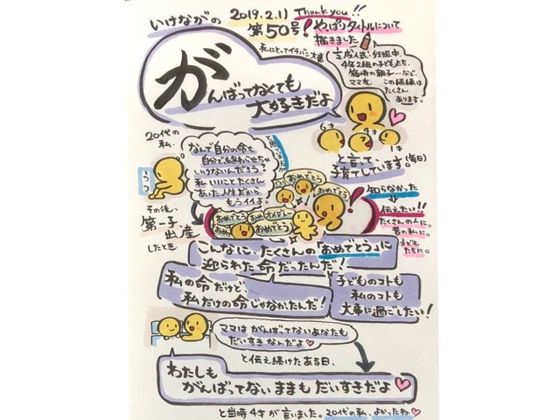 いけながの
2019.2.11
第50号!
Thank you!!
やっぱりタイトルについて
描きました
私にとってイチバン大事
がんばってなくても
大好きだよ
ママを
この組織は
たくさん
あります。
6才
4才
1才
と言って、
子育てしています。(毎日)
20代の
私、
うつ
なんで自分の命を
自分で終わらせちゃ
いけないんだろう?
私いいことたくさん
あった人生だから
もうイイよ。
その後、
第一子
出産
したとき
おめでとう
おめでとう
おめでとう
おめでとう
知らなかった
伝えたい!!
たくさんの人に。
昔の私に。
子ども
たちに。
こんなに、たくさんの「おめでとう」に
迎られた命だったんだ!
私の命だけど、
私だけの命じゃなかったんだ!
子どものコトも
私のコトも
大事に過ごしたい!
ママは がんばってないあなたも
だいすきなんだよ♡
と伝え続けたある日、
わたしも
がんばってないままも だいすきだよ♡
と当時4才が言いました。20代の私、よかったね♡